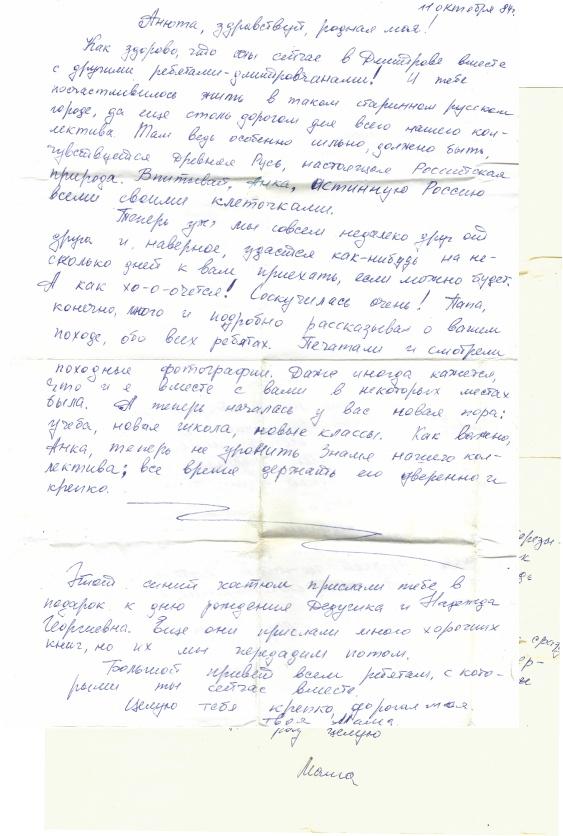 11 октября 84г.
Анюта, здравствуй, родная моя!
Как здорово, что вы сейчас в Дмитрове вместе
с другими ребятами-дмитровчанами! И тебе
посчастливилось жить в таком старинном русском
городе, да еще столь дорогом для всего нашего кол-
лектива. Там ведь особенно сильно, должно быть,
чувствуется Древняя Русь, настоящая Российская
природа. Впитывай, Анка, истинную Россию
всеми своими клеточками.
Теперь уж мы совсем недалеко друг от
друга и, наверное, удастся как-нибудь на не-
сколько дней к вам приехать, если можно будет.
А как хо-о-очется! Соскучилась очень! Папа,
конечно, много и подробно рассказывал о вашем
походе, обо всех ребятах. Печатали и смотрели
походные фотографии. Даже иногда кажется,
что и я вместе с вами в некоторых местах
была. А теперь началась у вас новая пора:
учеба, новая школа, новые классы. Как важно,
Анка, теперь не уронить Знамя нашего кол-
лектива; все время держать его уверенно и
крепко.
Этот синий костюм прислали тебе в
подарок к дню рождения Дедушка и Надежда
Георгиевна. Еще они прислали много хороших
книг, но их мы передадим потом.
Большой привет всем ребятам, с кото-
рыми ты сейчас вместе.
Целую тебя крепко, дорогая моя.
твоя Мама.
целую
Мама